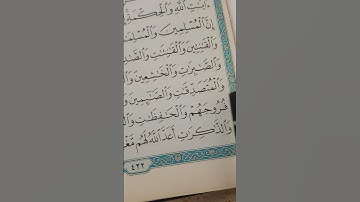 ءَايَٰتِ ٱللَّهِ وَٱلْحِكْمَةِ
إِنَّ ٱلْمُسْلِمِينَ وَٱلْمُسْلِمَٰ
وَٱلْقَٰنِتِينَ وَٱلْقَٰنِتَٰتِ وَٱلصَّٰ
وَٱلصَّٰبِرَٰتِ وَٱلْخَٰشِعِينَ وَٱلْ
وَٱلْمُتَصَدِّقَٰتِ وَٱلصَّٰٓئِمِينَ
فُرُوجَهُمْ وَٱلْحَٰفِظَٰتِ وَٱل
وَٱلذَّٰكِرَٰتِ أَعَدَّ ٱللَّهُ لَهُم مَّغْ
٤٢٢